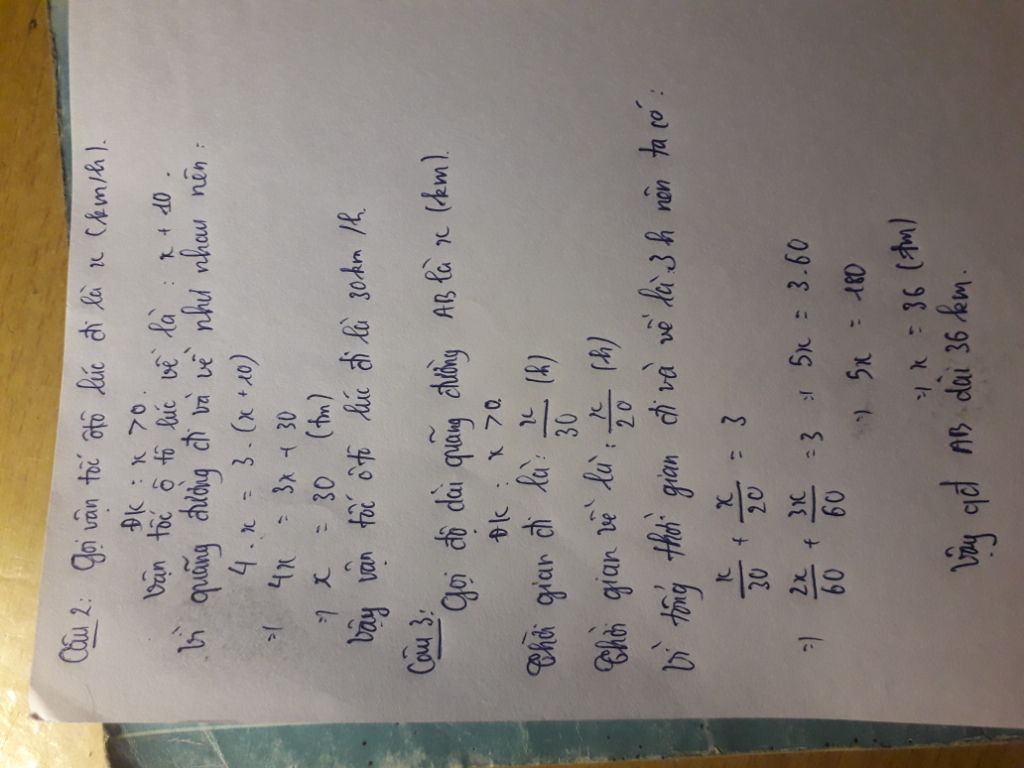 Câu 2: Gọi vận tốc ôtô lúc đi là x (km/h).
ĐK : x > 0.
Vận tốc ô tô lúc về là : x + 10.
Vì quãng đường đi và về như nhau nên :
4 . x = 3 . (x + 10)
=> 4x = 3x + 30
=> x = 30 (tm)
Vậy vận tốc ôtô lúc đi là 30km/h.
Câu 3:
Gọi độ dài quãng đường AB là x (km).
ĐK : x > 0.
Thời gian đi là: x/30 (h)
Thời gian về là: x/20 (h)
Vì tổng thời gian đi và về là 3h nên ta có :
x/30 + x/20 = 3
=> 2x/60 + 3x/60 = 3 => 5x = 3.60
=> 5x = 180
=> x = 36 (tm)
Vậy qđ AB dài 36 km.